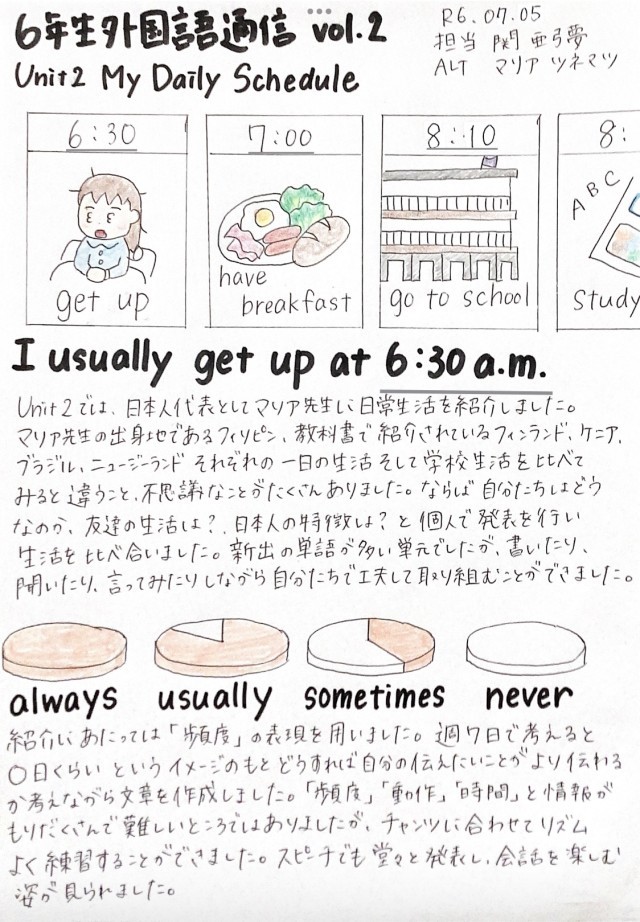 6年生外国語通信 vol.2
R6.07.05
担当 関 亜弓夢
ALT マリア ツネマツ
Unit2 My Daily Schedule
6:30
7:00
8:10
8:
get up
have
breakfast
go to school
ABC
Study
I usually get up at 6:30 a.m.
Unit2では、日本人代表としてマリア先生に日常生活を紹介しました。
マリア先生の出身地であるフィリピン、教科書で紹介されているフィンランド、ケニア、
ブラジル、ニュージーランド それぞれの一日の生活そして学校生活を比べて
みると違うこと、不思議なことがたくさんありました。ならば自分たちはどう
なのか、友達の生活は?、日本人の特徴は?と個人で発表を行い
生活を比べ合いました。新出の単語が多い単元でしたが、書いたり、
聞いたり、言ってみたりしながら自分たちで工夫して取り組むことができました。
always usually sometimes never
紹介にあたっては「頻度」の表現を用いました。週7日で考えると
〇日くらい というイメージのもと どうすれば自分の伝えたいことがより伝わる
か考えながら文章を作成しました。「頻度」「動作」「時間」と情報が
もりだくさんで難しいところではありましたが、チャンツに合わせてリズム
よく練習することができました。スピーチでも堂々と発表し、会話を楽しむ
姿が見られました。